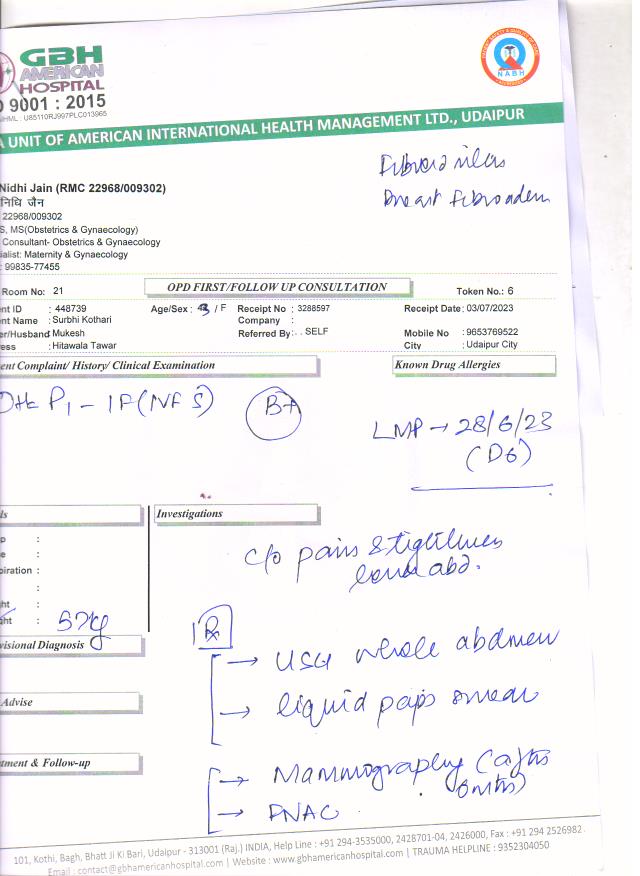 GBH
AMERICAN
HOSPITAL
9001 : 2015
U85110RJ997PLC013965
NABH
A UNIT OF AMERICAN INTERNATIONAL HEALTH MANAGEMENT LTD., UDAIPUR
Fibroid
Breast fibroadenoma
Nidhi Jain (RMC 22968/009302)
निधि जैन
22968/009302
S, MS(Obstetrics & Gynaecology)
Consultant- Obstetrics & Gynaecology
ialist: Maternity & Gynaecology
: 99835-77455
Room No: 21 OPD FIRST/FOLLOW UP CONSULTATION Token No.: 6
ent ID : 448739 Age/Sex : / F Receipt No : 3288597 Receipt Date: 03/07/2023
ent Name : Surbhi Kothari Company :
er/Husband : Mukesh Referred By: . . SELF Mobile No : 9653769522
ess : Hitawala Tawar City : Udaipur City
ent Complaint/ History/ Clinical Examination Known Drug Allergies
P1 - 1F (NFS) B+
LMP → 28/6/23
(D6)
ls Investigations
p :
e :
piration :
:
ht :
ht : 57kg
c/o pain & tightness
lower abd.
Rx
visional Diagnosis
→ USG whole abdomen
Advise
→ liquid paps smear
tment & Follow-up
→ Mammography (after
→ FNAC
101, Kothi, Bagh, Bhatt Ji Ki Bari, Udaipur - 313001 (Raj.) INDIA, Help Line : +91 294-3535000, 2428701-04, 2426000, Fax : +91 294 2526982
Email : contact@gbhamericanhospital.com | Website : www.gbhamericanhospital.com | TRAUMA HELPLINE : 9352304050